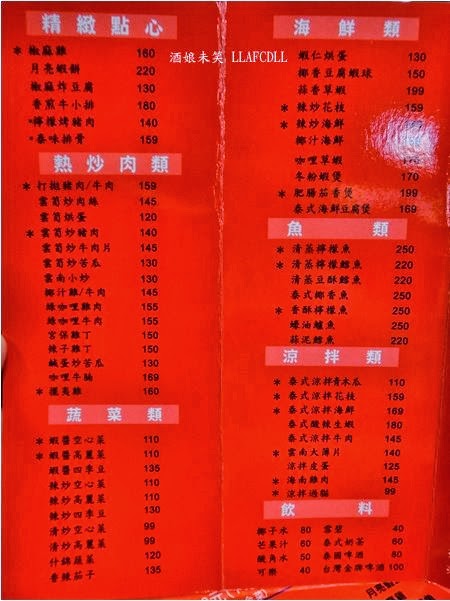 精緻點心
* 椒麻雞 160
月亮蝦餅 220
椒麻炸豆腐 130
香煎牛小排 180
*檸檬烤豬肉 140
*泰味排骨 159
熱炒肉類
* 打拋豬肉/牛肉 159
雲筍炒肉絲 145
雲筍烘蛋 120
* 雲筍炒豬肉 140
雲筍炒牛肉片 145
雲筍炒苦瓜 130
雲南小炒 130
椰汁雞/牛肉 145
綠咖哩雞肉 155
綠咖哩牛肉 155
宮保雞丁 150
辣子雞丁 150
鹹蛋炒苦瓜 130
咖哩牛腩 169
* 擺夷雞 160
蔬菜類
* 蝦醬空心菜 110
* 蝦醬高麗菜 110
蝦醬四季豆 135
辣炒空心菜 110
辣炒高麗菜 110
辣炒四季豆 135
清炒空心菜 99
清炒高麗菜 99
什錦蔬菜 120
香辣茄子 135
酒娘未笑 LLAFCDLL
海鮮類
蝦仁烘蛋 130
椰香豆腐蝦球 150
蒜香草蝦 199
* 辣炒花枝 159
* 辣炒海鮮 169
椰汁海鮮
咖哩草蝦
冬粉蝦煲 170
* 肥腸茄香煲 199
泰式海鮮豆腐煲 169
魚類
* 清蒸檸檬魚 250
* 清蒸檸檬鱈魚 220
清蒸豆酥鱈魚 220
泰式椰香魚 250
* 香酥檸檬魚 250
蠔油鱸魚 250
蒜泥鱈魚 220
涼拌類
* 泰式涼拌青木瓜 110
* 泰式涼拌花枝 159
* 泰式涼拌海鮮 169
泰式酸辣生蝦 180
泰式涼拌牛肉 145
* 雲南大薄片 140
涼拌皮蛋 125
* 海南雞肉 145
* 涼拌過貓 99
飲料
椰子水 80 雪碧 40
芒果汁 60 泰式奶茶 60
酸角水 50 泰國啤酒 80
可樂 40 台灣金牌啤酒 100